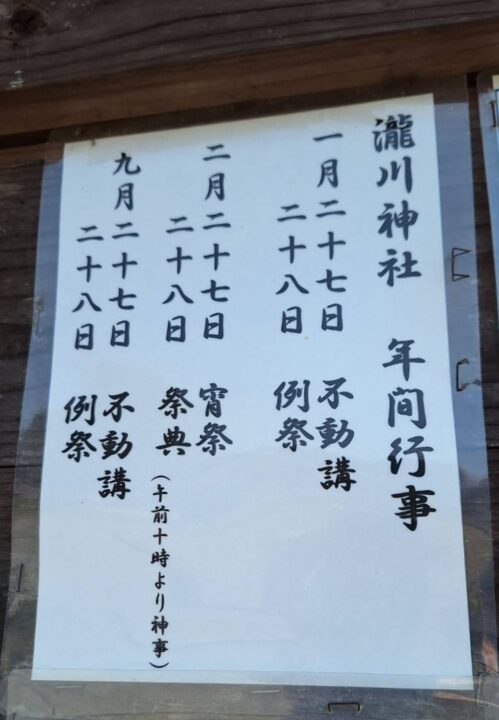 瀧川神社　年間行事
一月二十七日　不動講
二十八日　例祭
二月二十七日　宵祭
二十八日　祭典（午前十時より神事）
九月二十七日　不動講
二十八日　例祭